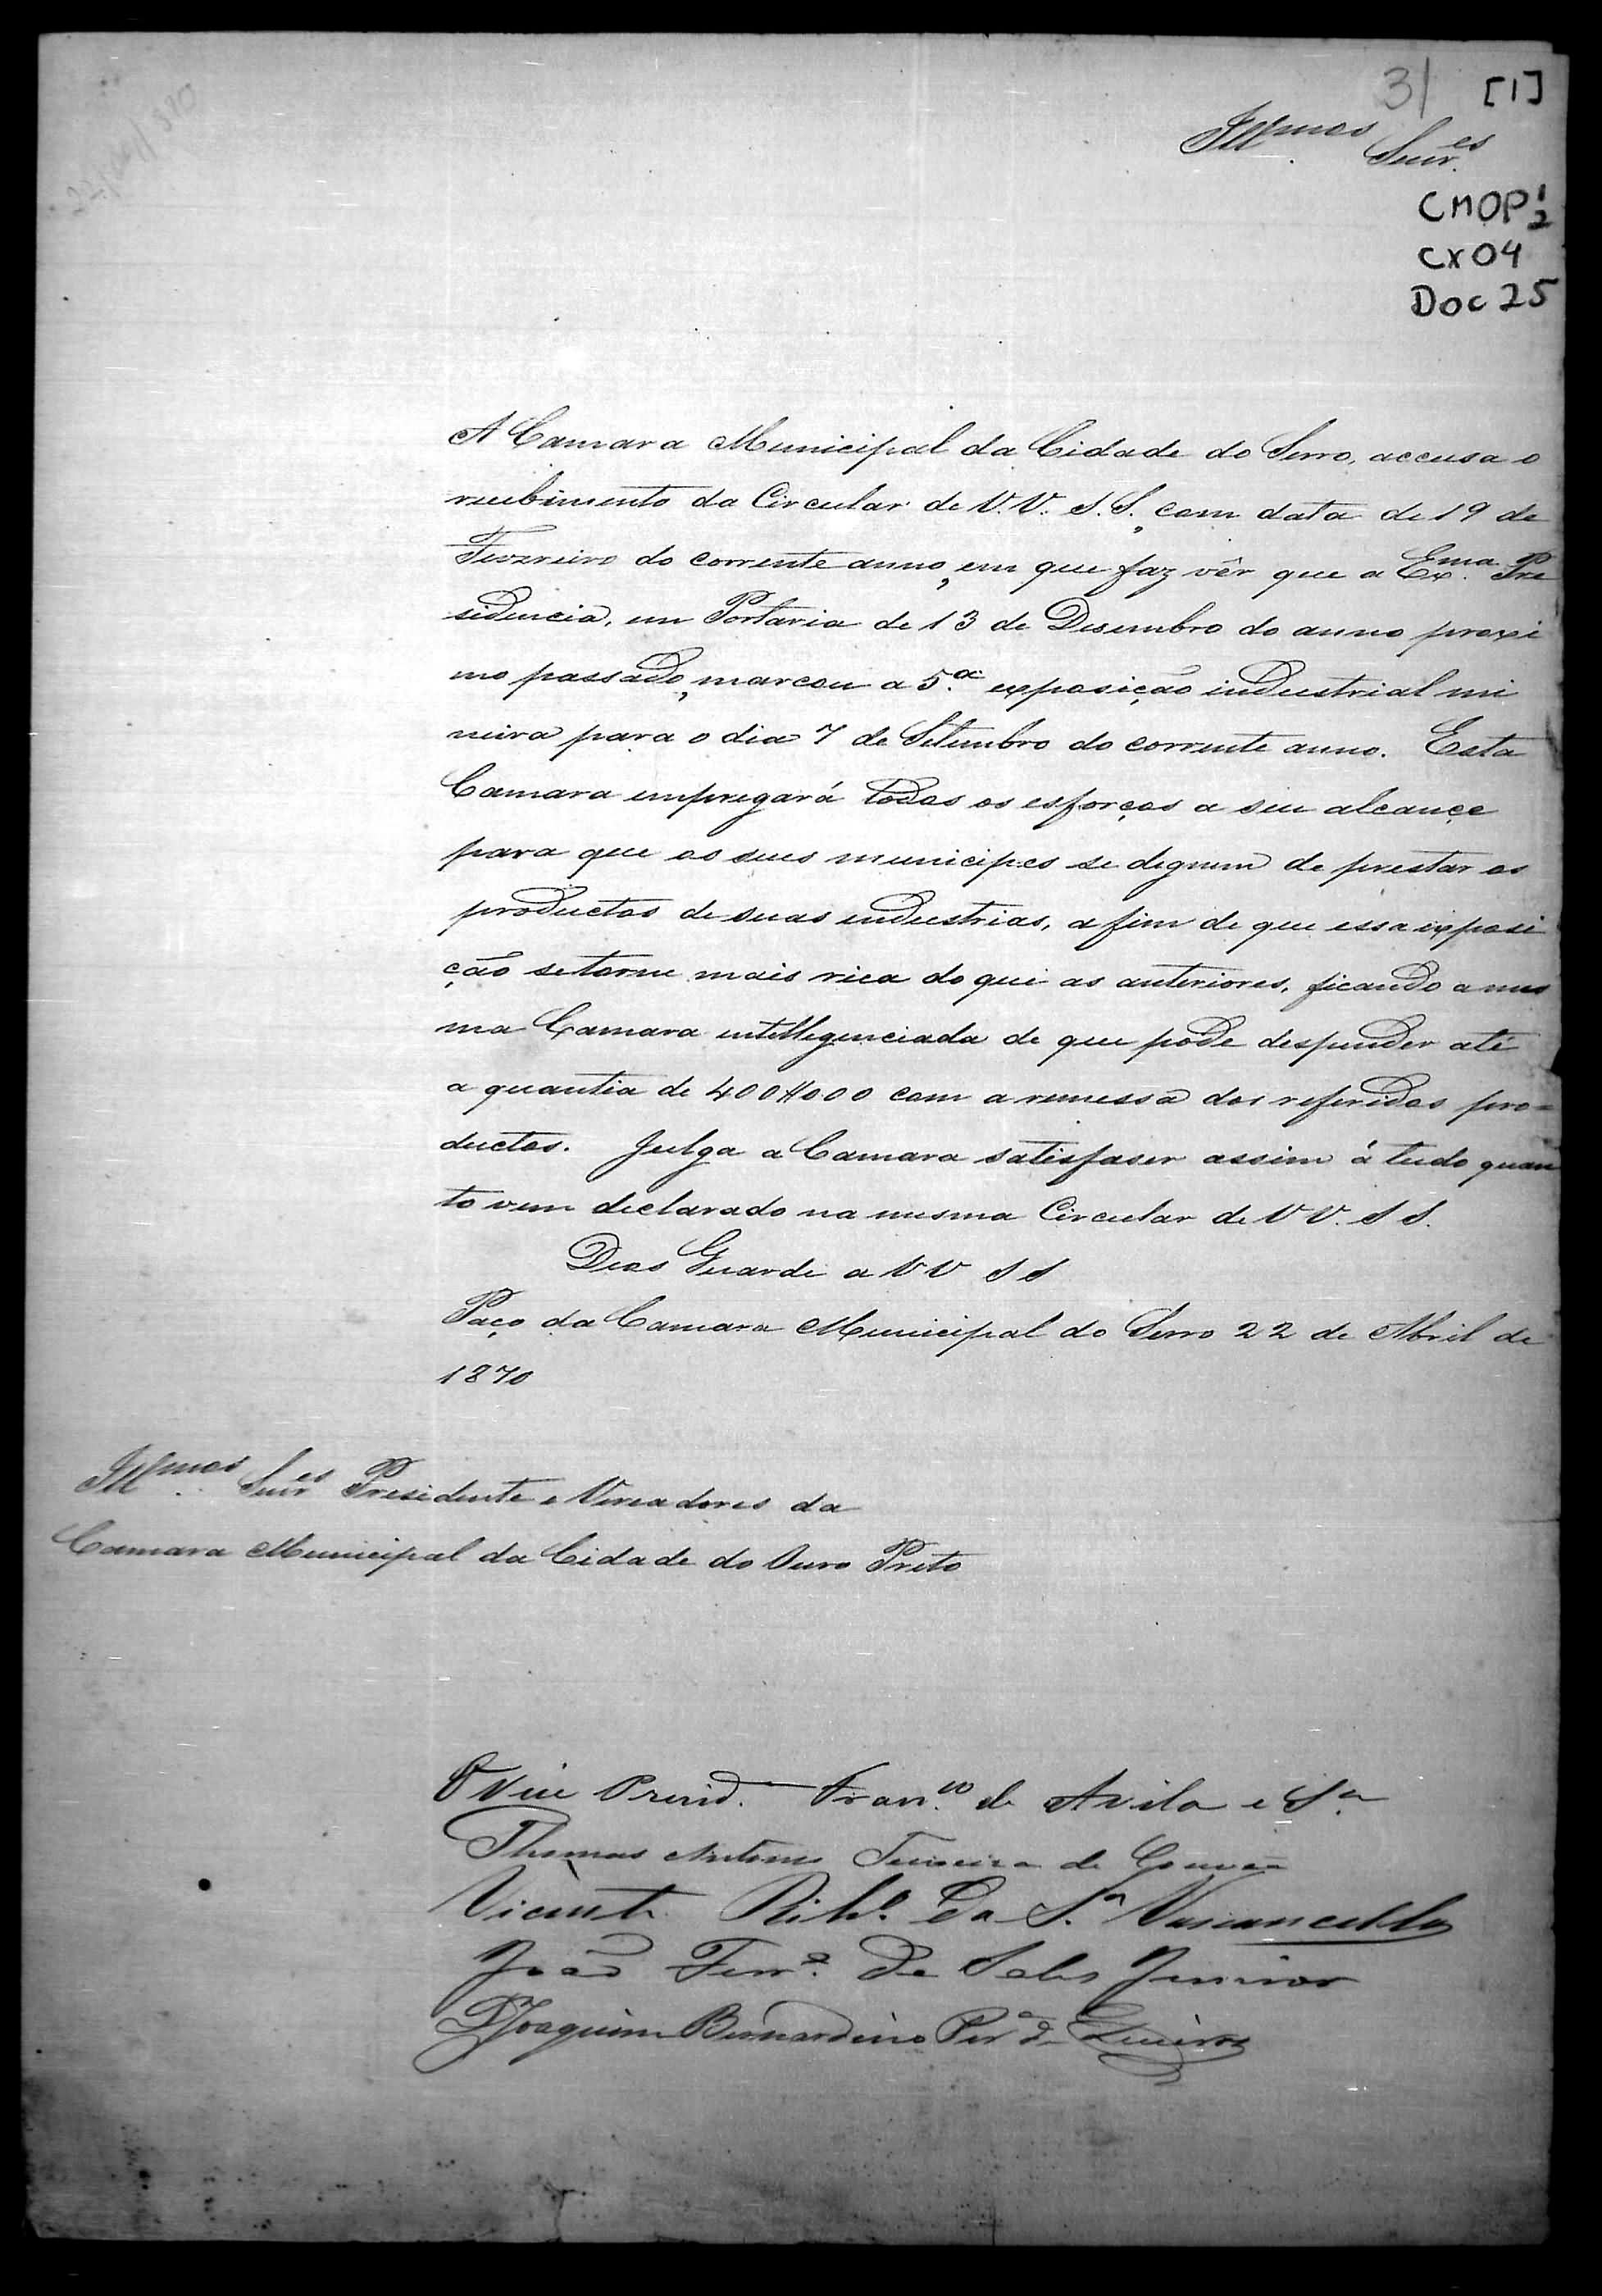 31 [1]
Ill.mos Senr.es
CMOP 1/2
CX 04
Doc 25
A Camara Municipal da Cidade do Serro, accusa o
recebimento da Circular de V.V. S.S., com data de 19 de
Fevereiro do corrente anno, em que faz vêr que a Ex.ma Pre
sidencia, em Portaria de 13 de Desembro do anno proxi
mo passado, marcou a 5.a exposição industrial mi
neira para o dia 7 de Setembro do corrente anno. Esta
Camara empregará todos os esforços a seu alcançe
para que os seus municipes se dignem de prestar os
productos de suas industrias, a fim de que essa exposi
ção se torne mais rica do que as anteriores, ficando a mes
ma Camara intelligenciada de que póde despender até
a quantia de 400$000 com a remessa dos referidos pro=
ductos. Julga a Camara satisfaser assim á tudo quan
to vem declarado na mesma Circular de V V. S S.
Deos Guarde a V V S S
Paço da Camara Municipal do Serro 22 de Abril de
1870
Ill.mos Senr.es Presidente e Vereadores da
Camara Municipal da Cidade do Ouro Preto
O Vice Presid. Fran.co de Avila e S.a
Thomas Antonio Teixeira de Gouvea
Vicente Rib.o da S.a Vasconcellos
João Ferr.a de Sales Junior
Joaquim Bernardino Per.a de Queiros